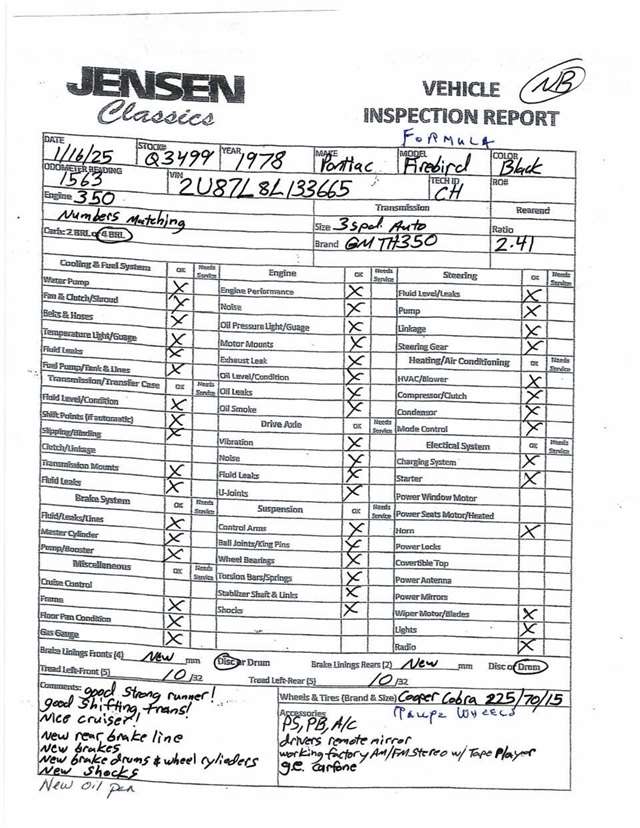 JENSEN
Classics
VEHICLE
INSPECTION REPORT
NB
FORMULA
DATE 1/16/25 STOCK# Q3499 YEAR 1978 MAKE Pontiac MODEL Firebird COLOR Black
ODOMETER READING 1563 VIN 2U87L8L133665 TECH ID CH RO#
Engine 350 Transmission Rearend
Numbers Matching Size 3 spd. Auto Ratio
Carb: 2 BRL or 4 BRL Brand GM TH350 2.41
Cooling & Fuel System OK Needs Service
Water Pump X
Fan & Clutch/Shroud X
Belts & Hoses X
Temperature Light/Guage X
Fluid Leaks X
Fuel Pump/Tank & Lines X
Transmission/Transfer Case OK Needs Service
Fluid Level/Condition X
Shift Points (if automatic) X
Slipping/Binding X
Clutch/Linkage
Transmission Mounts X
Fluid Leaks X
Brake System OK Needs Service
Fluid/Leaks/Lines X
Master Cylinder X
Pump/Booster X
Miscellaneous OK Needs Service
Cruise Control
Frame X
Floor Pan Condition X
Gas Gauge X
Engine OK Needs Service
Engine Performance X
Noise X
Oil Pressure Light/Guage X
Motor Mounts X
Exhaust Leak X
Oil Level/Condition X
Oil Leaks X
Oil Smoke X
Drive Axle OK Needs Service
Vibration X
Noise X
Fluid Leaks X
U-Joints X
Suspension OK Needs Service
Control Arms X
Ball Joints/King Pins X
Wheel Bearings X
Torsion Bars/Springs X
Stablizer Shaft & Links X
Shocks X
Steering OK Needs Service
Fluid Level/Leaks X
Pump X
Linkage X
Steering Gear X
Heating/Air Conditioning OK Needs Service
HVAC/Blower X
Compressor/Clutch X
Condensor X
Mode Control X
Electical System OK Needs Service
Charging System X
Starter X
Power Window Motor
Power Seats Motor/Heated
Horn X
Power Locks
Covertible Top
Power Antenna
Power Mirrors
Wiper Motor/Blades X
Lights X
Radio X
Brake Linings Fronts (4) New mm Disc or Drum Brake Linings Rears (2) New mm Disc or Drum
Tread Left-Front (5) 10/32 Tread Left-Rear (5) 10/32
Comments: good strong runner!
good shifting trans!
Nice cruiser!
New rear brake line
New brakes
New brake drums & wheel cyliaders
New shocks
New oil pan
Wheels & Tires (Brand & Size) Cooper Cobra 225/70/15
Accessories
PS, PB, A/C
drivers remote mirror
working factory AM/FM Stereo w/ Tape Player
g.e. carfone